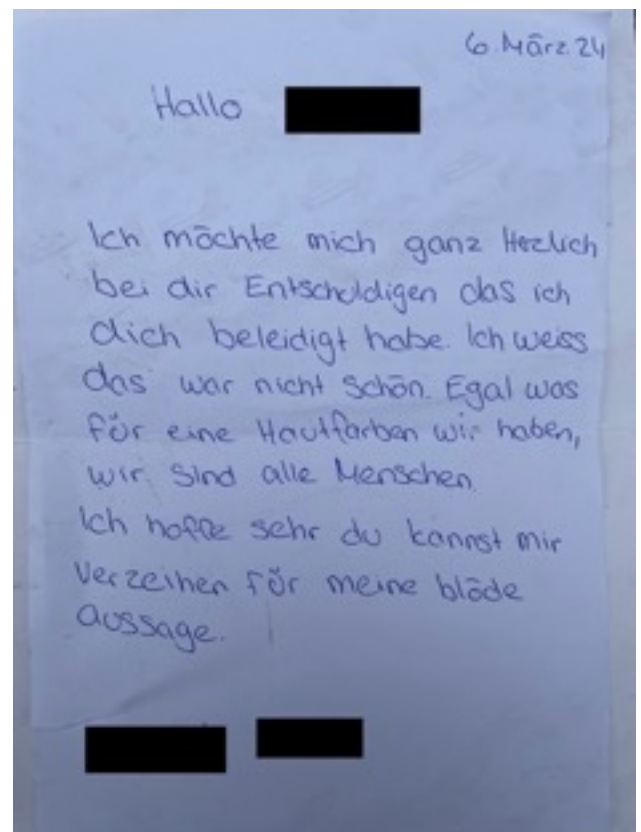 6. März. 24
Hallo
Ich möchte mich ganz Herzlich
bei dir Entschuldigen das ich
dich beleidigt habe. Ich weiss
das war nicht schön. Egal was
für eine Hautfarben wir haben,
wir sind alle Menschen.
Ich hoffe sehr du kannst mir
verzeihen für meine blöde
aussage.